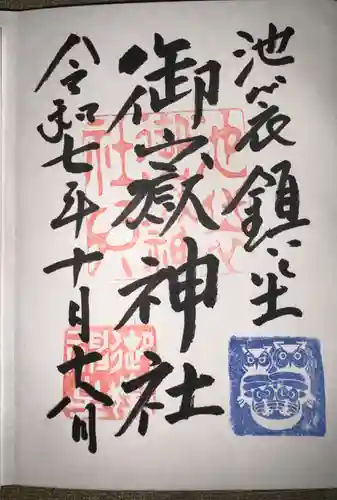 池袋鎮坐
御嶽神社
令和七年十月十八日